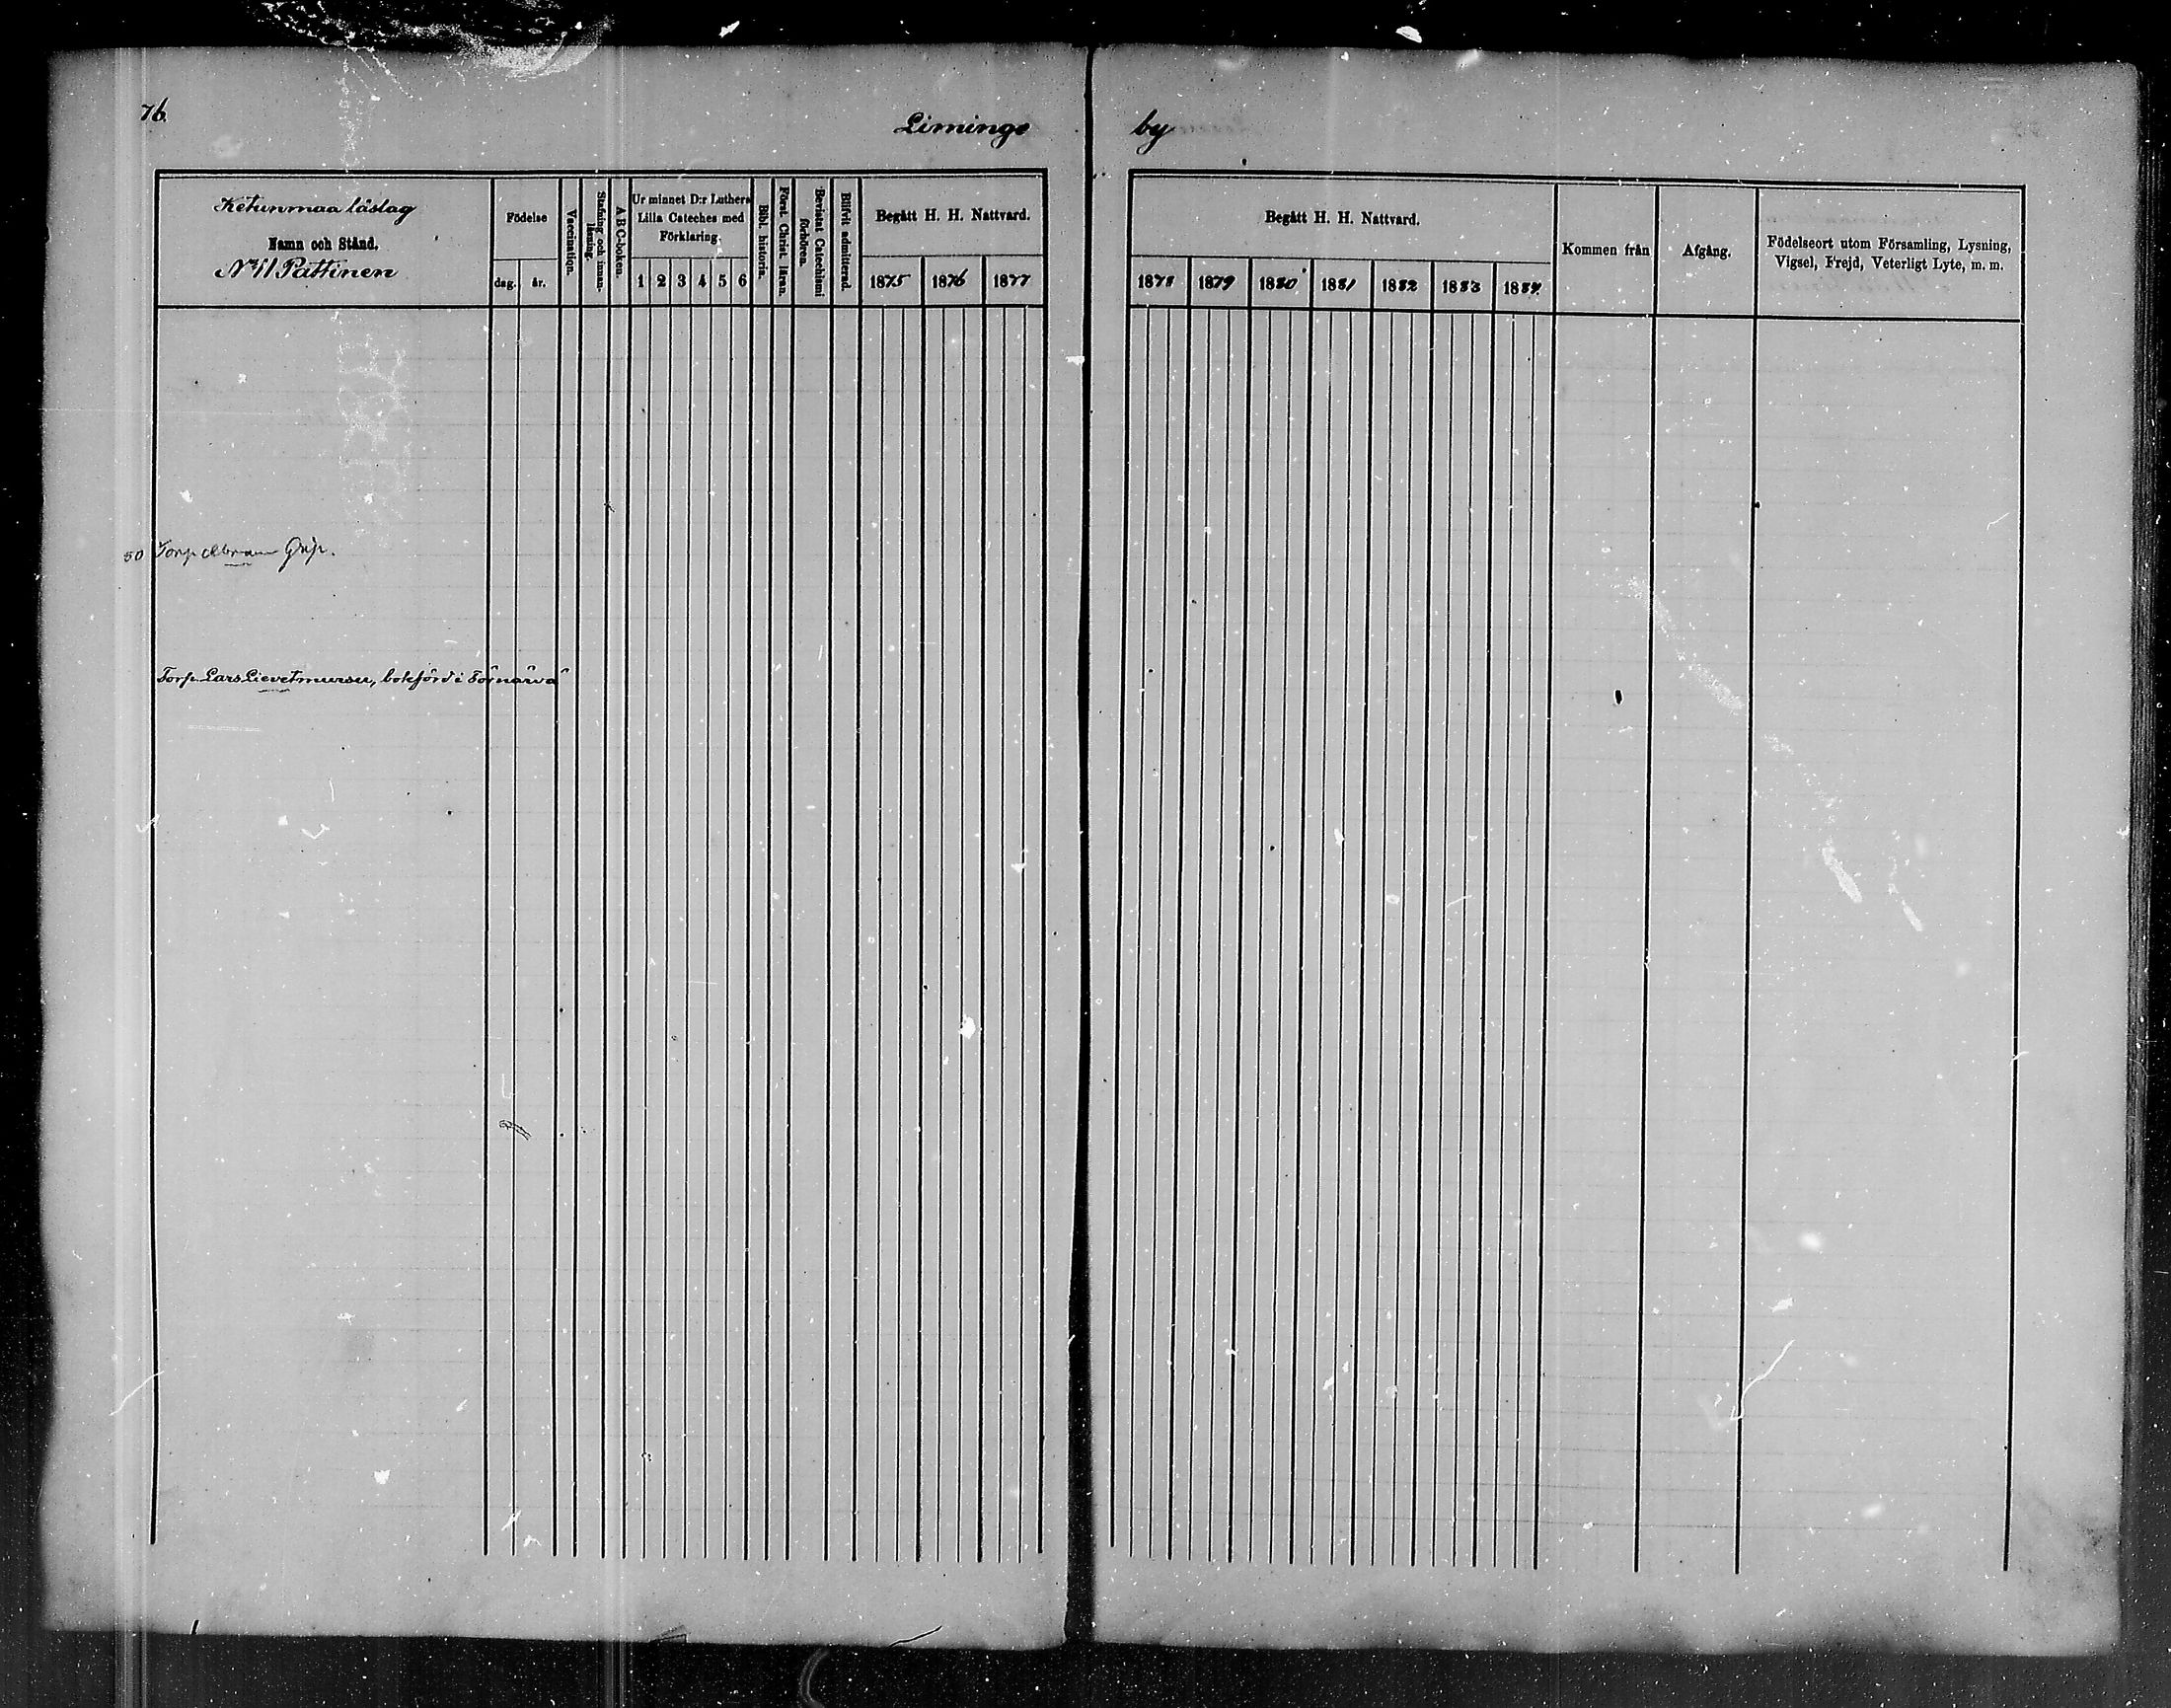 76.
Liminge by
Ketunmaa läslag
Namn och Stånd.
No 11 Pattinen
Födelse
dag. år.
Vaccination.
Stafning och innan-
läsning.
A B C-boken.
Ur minnet D:r Luthers
Lilla Cateches med
Förklaring.
1 2 3 4 5 6
Bibl. historia.
Först. Christ. läran.
Bevistat Catechismi
förhören.
Blifvit admitterad.
Begått H. H. Nattvard.
1875 1876 1877
Begått H. H. Nattvard.
1878 1879 1880 1881 1882 1883 1884
Kommen från
Afgång.
Födelseort utom Församling, Lysning,
Vigsel, Frejd, Veterligt Lyte, m. m.
50 Torp Abram
Torp. Lars Lievetmursu, bokförd i Törnävä